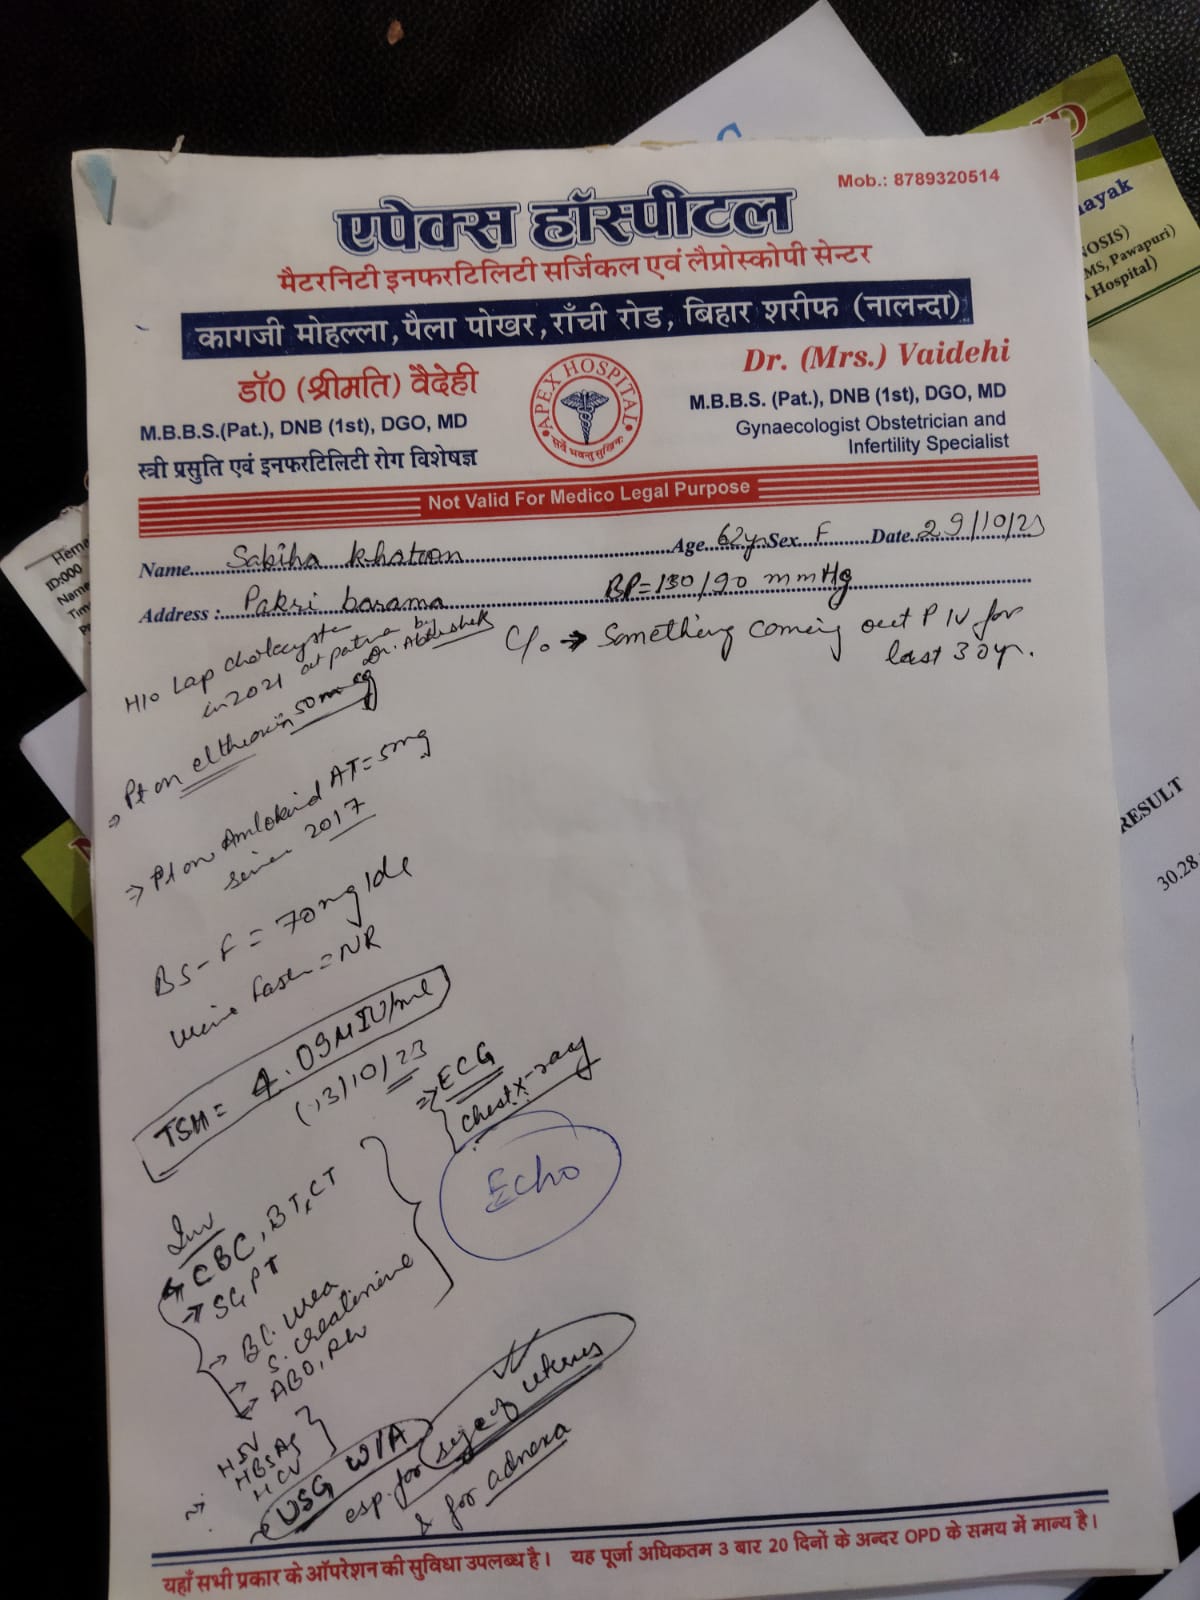 Mob.: 8789320514
एपेक्स हॉस्पीटल
मैटरनिटी इनफरटिलिटी सर्जिकल एवं लैप्रोस्कोपी सेन्टर
कागजी मोहल्ला, पैला पोखर, राँची रोड, बिहार शरीफ (नालन्दा)
डॉ0 (श्रीमति) वैदेही
M.B.B.S.(Pat.), DNB (1st), DGO, MD
स्त्री प्रसुति एवं इनफरटिलिटी रोग विशेषज्ञ
APEX HOSPITAL
सर्वे भवन्तु सुखिनः
Dr. (Mrs.) Vaidehi
M.B.B.S. (Pat.), DNB (1st), DGO, MD
Gynaecologist Obstetrician and
Infertility Specialist
Not Valid For Medico Legal Purpose
Name Sabiha Khatoon Age 62yr Sex F Date 29/10/23
Address : Pakri barama BP=130/90 mmHg
C/o → Something coming out P/V for
last 30yr.
H/o Lap cholecyste
in 2021 at patna by
Dr. Abhishek
⇒ Pt on eltroxin 50mcg
⇒ Pt on Amlokind AT=5mg
since 2017
BS-F = 70mg/dl
Urine = NR
TSH = 4.09μIU/ml
(13/10/23
⇒ ECG
Chest X-ray
Echo
Inv
→ CBC, BT, CT
→ SGPT
→ Bl. urea
→ S. creatinine
→ ABO, Rh
HIV
HBsAg
HCV
→ USG W/A
esp. for size of uterus
& for adnexa
यहाँ सभी प्रकार के ऑपरेशन की सुविधा उपलब्ध है। यह पूर्जा अधिकतम 3 बार 20 दिनों के अन्दर OPD के समय में मान्य है।
nayak
NOSIS)
MS, Pawapuri)
Hospital)
Heme
ID:000
Name
Time
RESULT
30.28